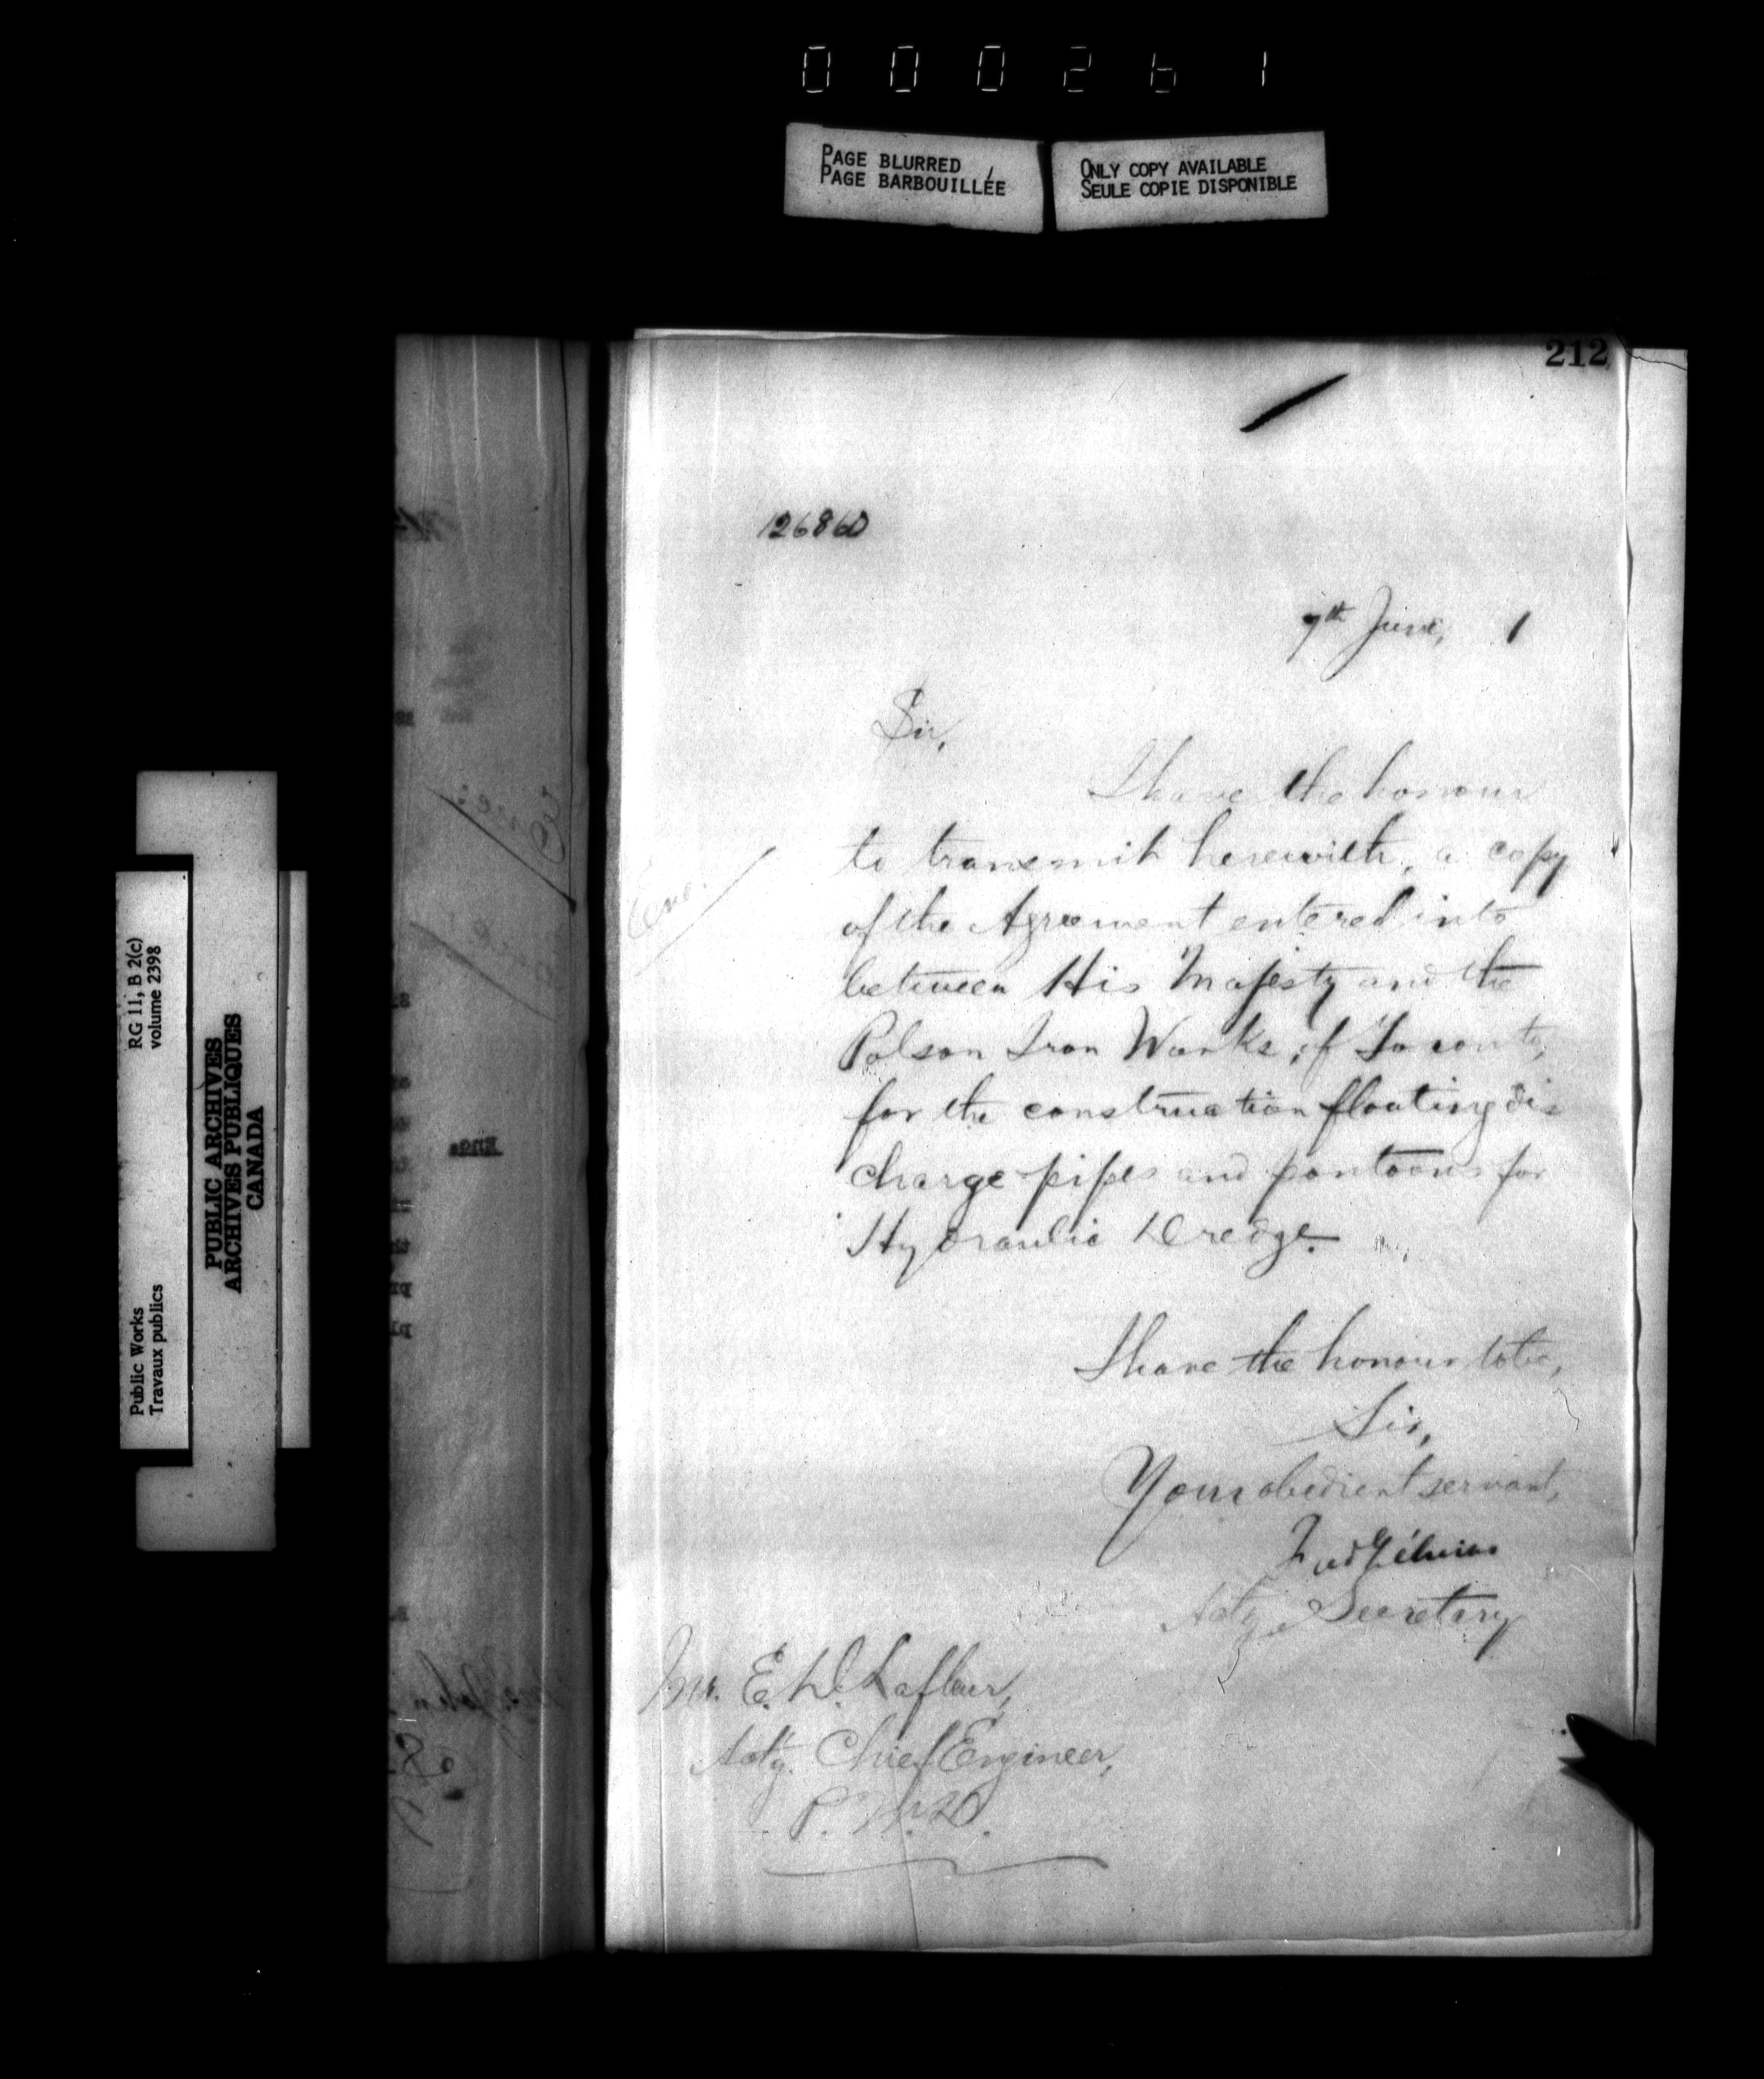 000261
PAGE BLURRED
PAGE BARBOUILLÉE
ONLY COPY AVAILABLE
SEULE COPIE DISPONIBLE
RG 11, B 2(c)
volume 2398
PUBLIC ARCHIVES
ARCHIVES PUBLIQUES
CANADA
Public Works
Travaux publics
212
7th June, 1
Sir,
I have the honour
to transmit herewith, a copy
Enc.
of the Agreement entered into
between His Majesty and the
Polson Iron Works, of Toronto,
for the construction floating dis
charge pipes and pontoons for
Hydraulic Dredge.
I have the honour to be,
Sir,
Your obedient servant,
Fred Gélinas
Actg. Secretary
Mr. E. D. Lafleur,
Actg. Chief Engineer,
P.W.D.